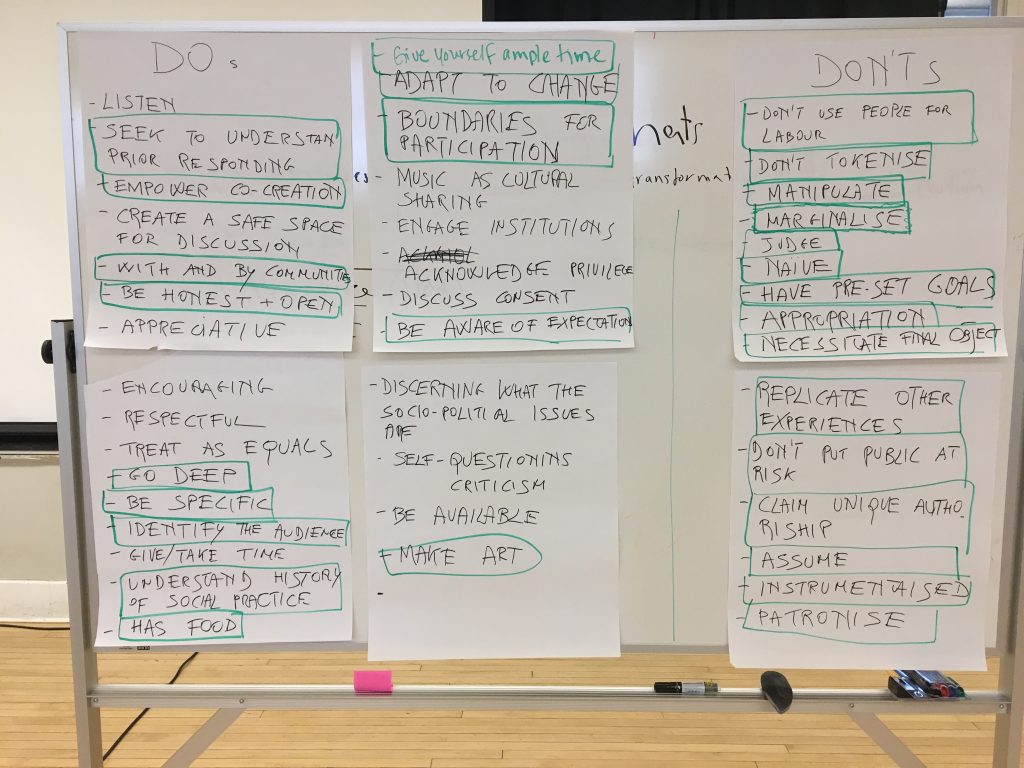 DO s
- LISTEN
- SEEK TO UNDERSTAN
PRIOR RESPONDING
- EMPOWER CO-CREATION
- CREATE A SAFE SPACE
FOR DISCUSSION
- WITH AND BY COMMUNITIES
- BE HONEST + OPEN
- APPRECIATIVE
- ENCOURAGING
- RESPECTFUL
- TREAT AS EQUALS
- GO DEEP
- BE SPECIFIC
- IDENTIFY THE AUDIENCE
- GIVE/TAKE TIME
- UNDERSTAND HISTORY
OF SOCIAL PRACTICE
- HAS FOOD
- Give yourself ample time
- ADAPT TO CHANGE
- BOUNDARIES FOR
PARTICIPATION
- MUSIC AS CULTURAL
SHARING
- ENGAGE INSTITUTIONS
-
ACKNOWLEDGE PRIVILEGE
- DISCUSS CONSENT
- BE AWARE OF EXPECTATION
- DISCERNING WHAT THE
SOCIO-POLITICAL ISSUES
ARE
- SELF-QUESTIONING
CRITICISM
- BE AVAILABLE
- MAKE ART
-
nents
ransformat
DON'TS
- DON'T USE PEOPLE FOR
LABOUR
- DON'T TOKENISE
- MANIPULATE
- MARGINALISE
- JUDGE
- NAIVE
- HAVE PRE-SET GOALS
- APPROPRIATION
- NECESSITATE FINAL OBJECT
- REPLICATE OTHER
EXPERIENCES
- DON'T PUT PUBLIC AT
RISK
- CLAIM UNIQUE AUTHO.
RISHIP
- ASSUME
- INSTRUMENTALISED
- PATRONISE